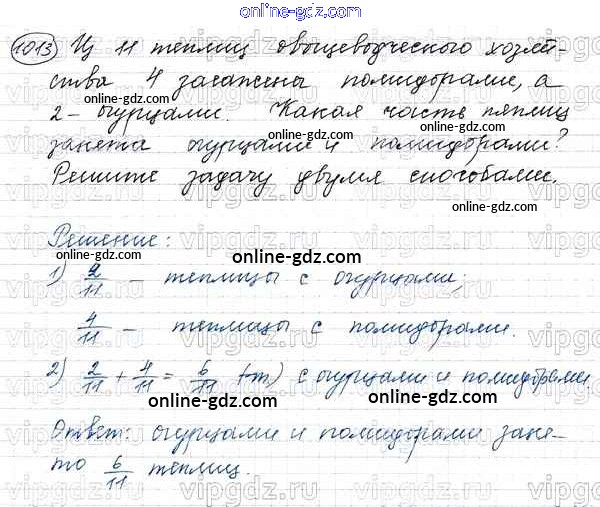 online-gdz.com
1013 Из 11 теплиц овощеводческого хозяй-
ства 4 засажены помидорами, а
online-gdz.com online-gdz.com
2 – огурцами. Какая часть теплиц
занята огурцами и помидорами?
Решите задачу двумя способами.
online-gdz.com
Решение:
online-gdz.com
1) 2/11 – теплицы с огурцами;
online-gdz.com
4/11 – теплицы с помидорами.
2) 2/11 + 4/11 = 6/11 (т) с огурцами и помидорами.
online-gdz.com online-gdz.com
Ответ: огурцами и помидорами заня-
то 6/11 теплиц.
online-gdz.com
vipgdz.com